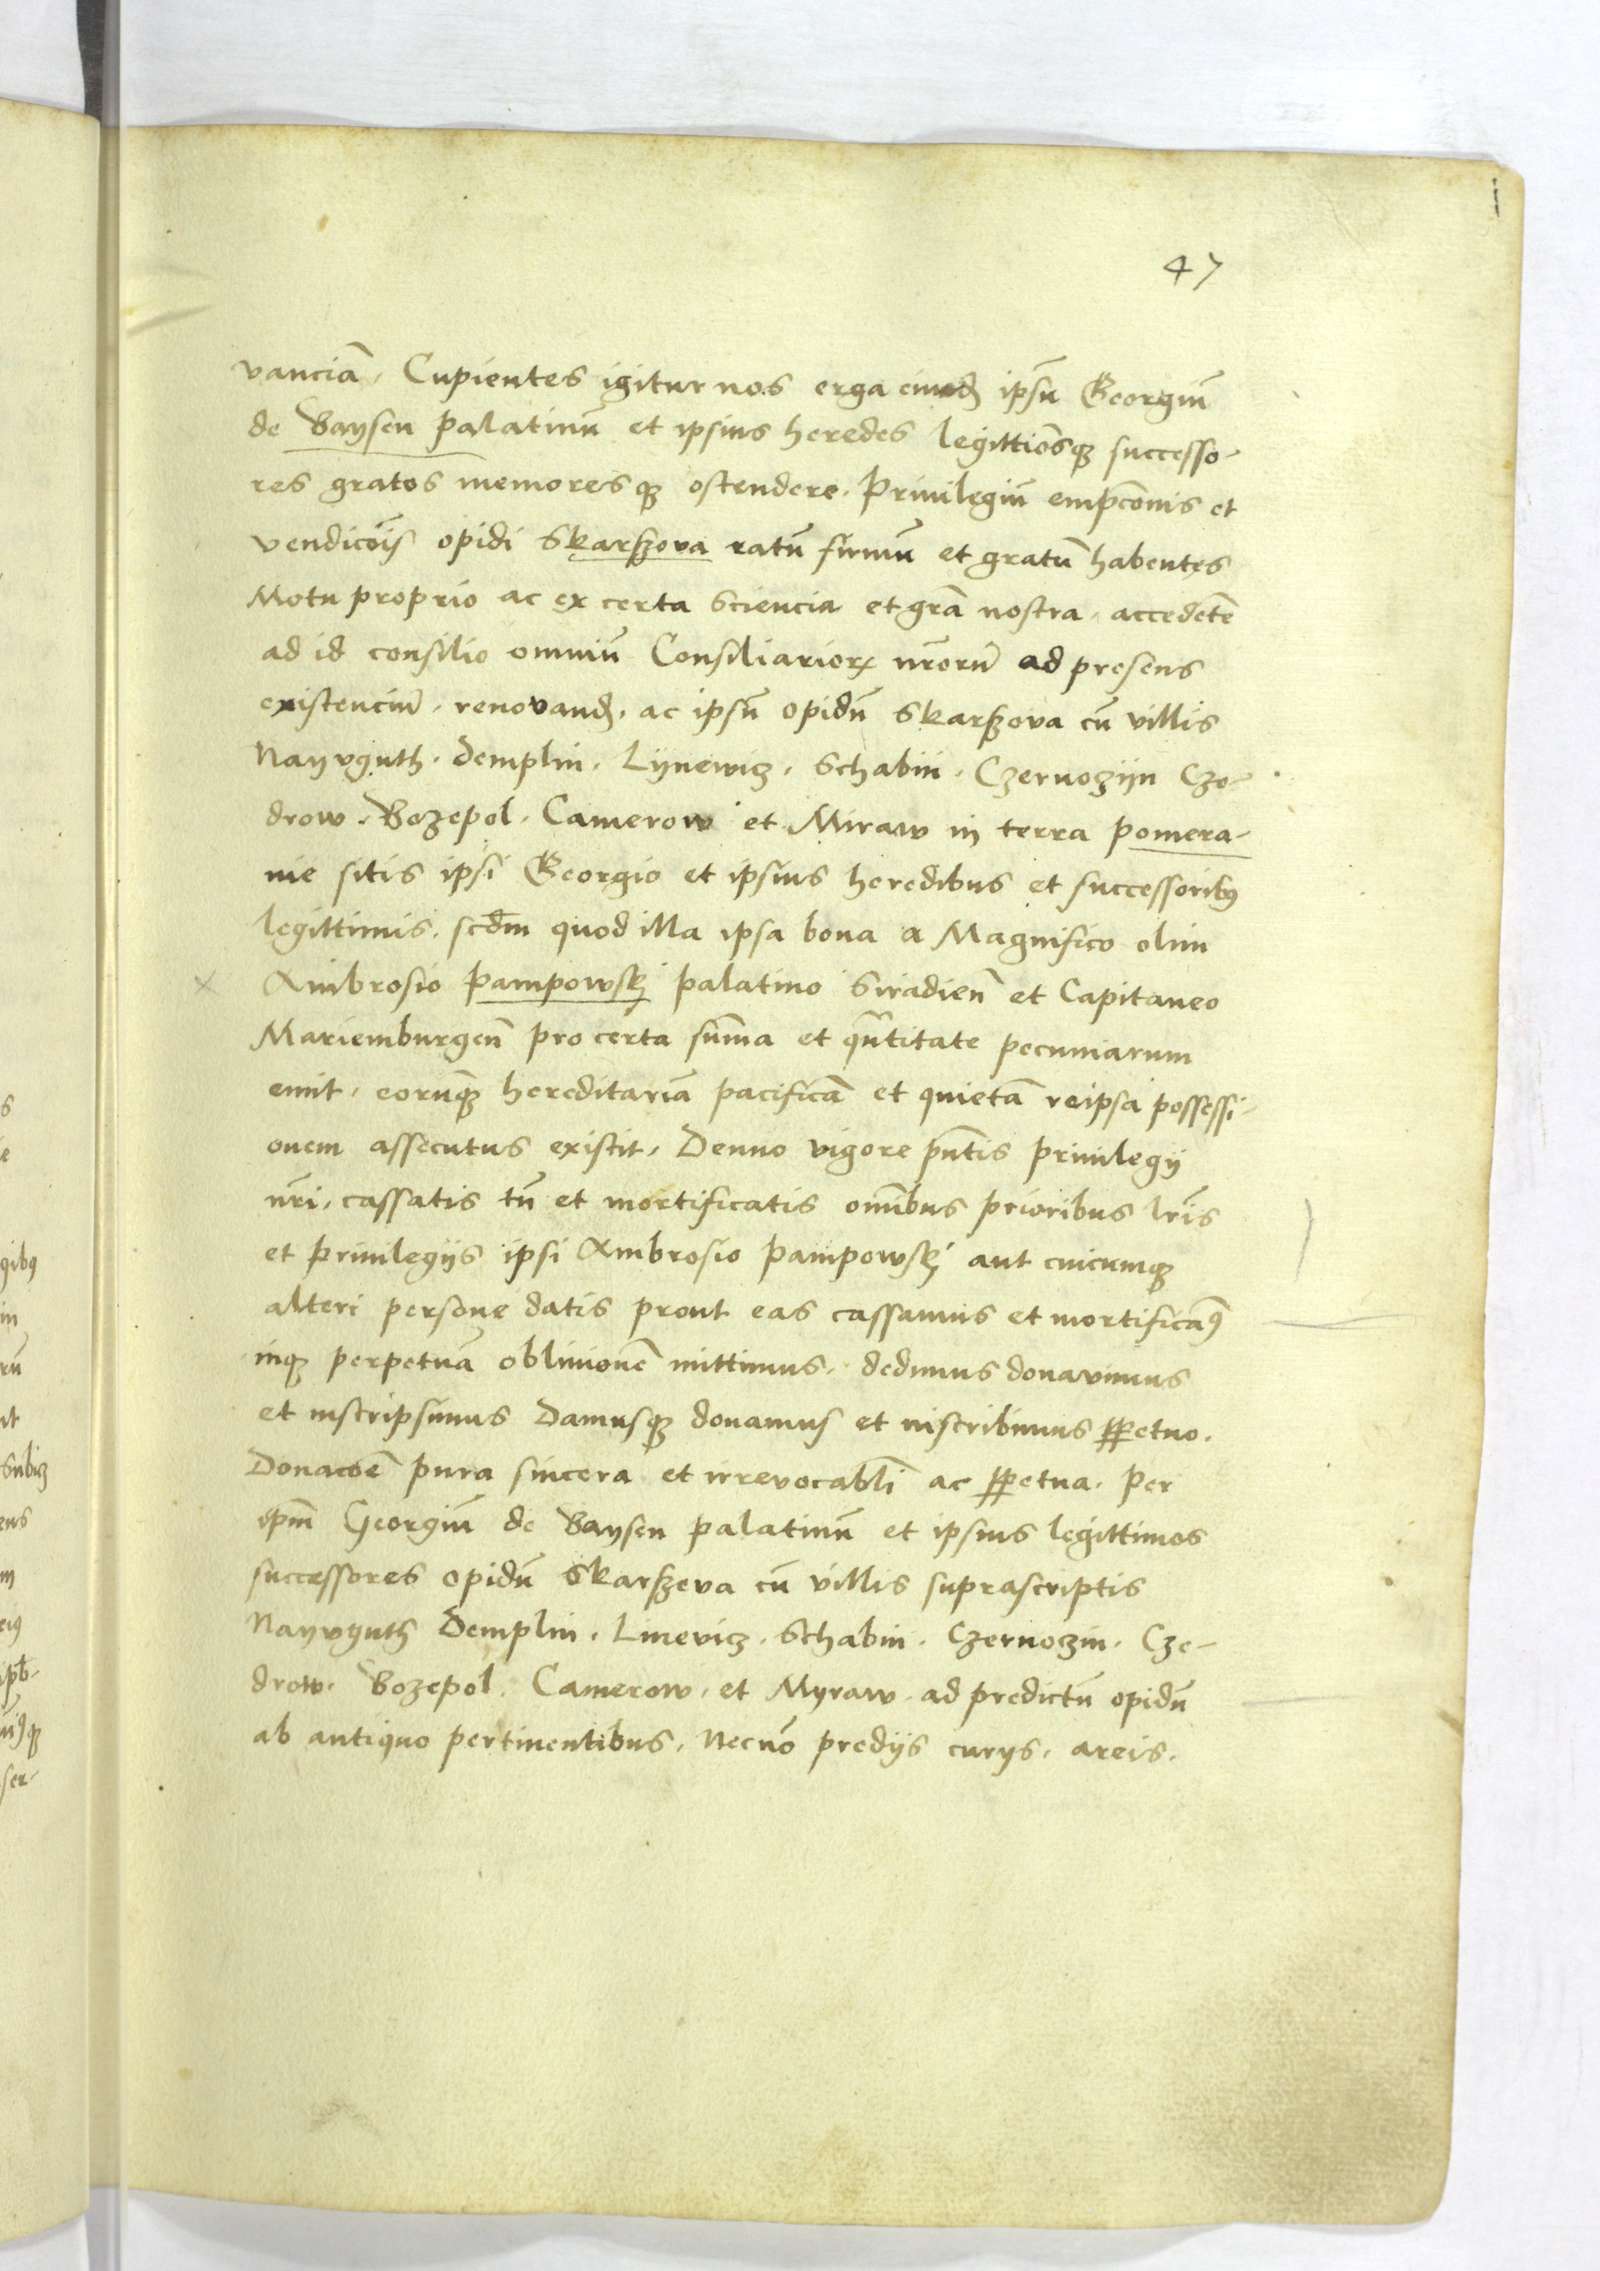 47
vanciā. Cupientes igitur nos erga eundē ipsū Georgiū
de Baysen palatinū et ipsius heredes legittiōsq successo-
res gratos memoresq ostendere. Priuilegiū empcōnis et
vendicōis opidi Skarszova ratū firmū et gratū habentes
Motu proprio ac ex certa Sciencia et grā nostra. accedētē
ad id consilio omniū Consiliarioꝝ nrōrū ad presens
existenciū. renovandꝫ. ac ipsū opidū Skarszova cū villis
Nayvguth. Demplin. Lÿnewicz. Schabin. Czernoziÿn Cze-
drow. Bozepol. Camerow et Miraw in terra pomera-
nie sitis ipsi Georgio et ipsius heredibus et successoribꝰ
legittimis. scd̄m quod illa ipsa bona a Magnifico olim
Ambrosio Pampowskj palatino Siradien̄ et Capitaneo
Mariemburgen̄ pro certa sum̄a et qūtitate pecuniarum
emit. eorūqꝫ hereditariā pacificā et quietā reipsa possessi-
onem assecutus existit. Denuo vigore pn̄tis priuilegij
nr̄i. cassatis tn̄ et mortificatis om̄ibus prioribus lr̄is
et priuilegijs ipsi Ambrosio Pampowskj aut cuicumqꝫ
alteri persone datis prout eas cassamus et mortificamꝰ
inqꝫ perpetuā obliuionē mittimus. dedimus donavimus
et inscripsimus Damusqꝫ donamus et inscribimus ꝑpetuo.
Donacōē pura sincera et irrevocabli ac ꝑpetua. Per
ipm̄ Georgiū de Baysen palatinū et ipsius legittimos
successores opidū Skarszeva cū villis suprascriptis
Nayvguth Demplin. Linevicz. Schabin. Czernozin. Cze-
drow. Bozepol. Camerow. et Myraw. ad predictū opidū
ab antiquo pertinentibus. Necnō predijs curijs. areis.